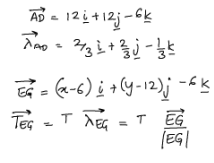 AD = 12i + 12j - 6k
λAD = 2/3 i + 2/3 j - 1/3 k
EG = (x-6) i + (y-12) j - 6 k
TEG = T λEG = T EG/|EG|